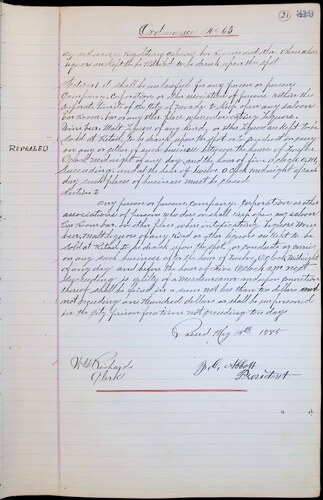 (21)
Ordinance No 63
An ordinance regulating saloons, bar rooms and other places where
liquors are kept to be retailed to be drank upon the spot
Section 1 It shall be unlawful for any person or persons
Company, Corporation or other association of persons within the
Corporate limits of the City of to keep open any saloon
bar room, bar or any other place where intoxicating liquors,
Wine, beer, Malt liquors of any kind, or other liquors are kept to be
sold at Retail, to be drank upon the spot, or to conduct or carry
on any such business between the hour of Twelve
O,clock midnight of any day and the hour of five O,clock A,M,
succeeding, and at the hour of twelve O,clock midnight of each
day such places of business must be closed
REPEALED
Section 2
Any person or persons, company, corporation or other
associations of persons who do or shall keep open any saloon
bar room, bar, or other place where intoxicating liquors, wine
beer, malt liquors of any kind or other liquors are kept to be
sold at Retail to be drank upon the spot, or conducts or carries
on any such business after the hour of twelve, O,clock midnight
of any day and before the hour of five O,clock A,M, next
succeeding is guilty of a misdemeanor and upon conviction
thereof shall be fined in a sum not less than ten dollars and
not exceeding one Hundred dollars or shall be imprisoned
in the City prison for a term not exceeding ten days
Passed May 1885
Clerk
J. C. Abbott
President